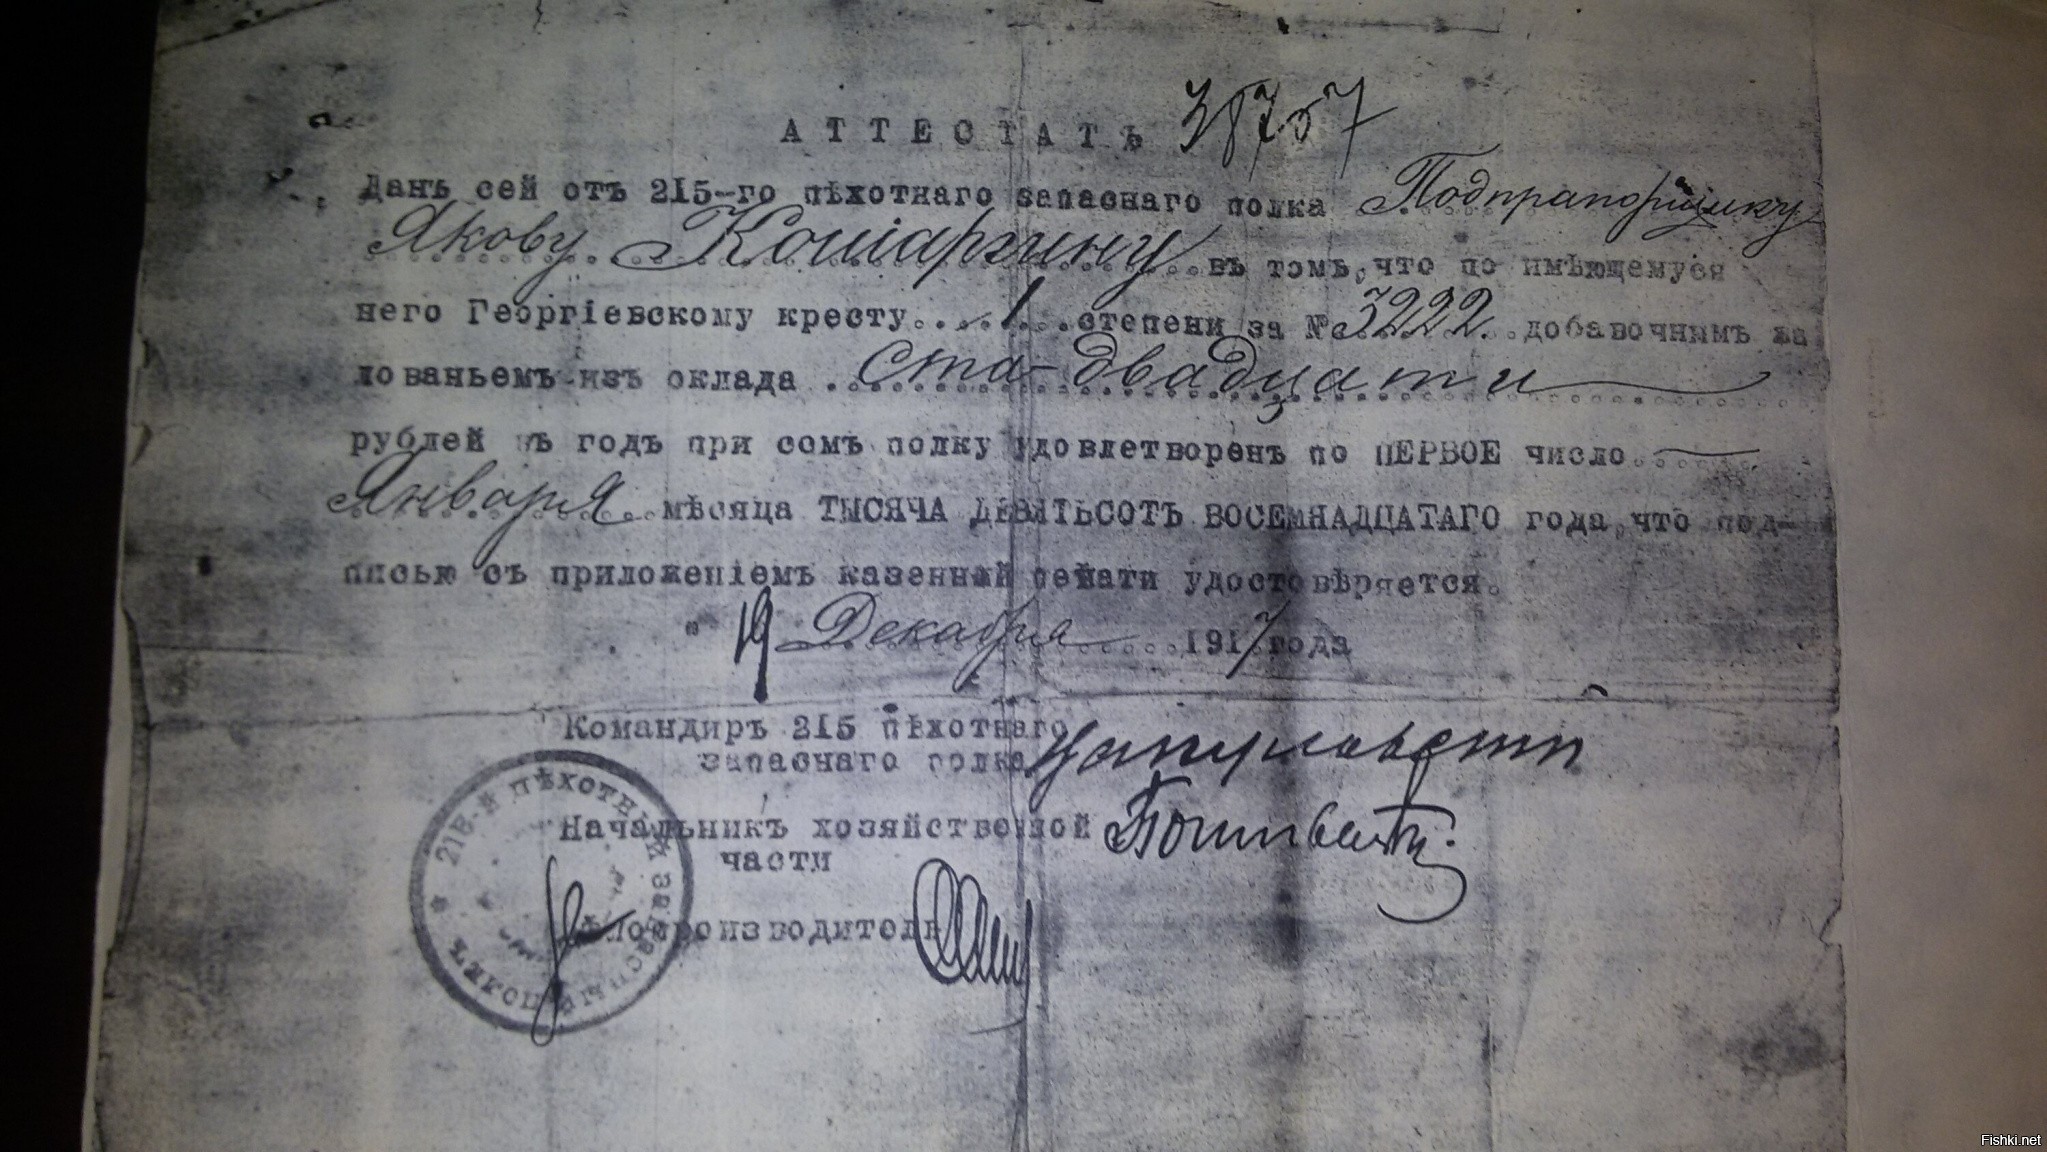 АТТЕСТАТЪ 38757
Данъ сей отъ 215-го пѣхотнаго запаснаго полка Подпрапорщику
Якову Кошаргину въ томъ, что по имѣющемуся
него Георгіевскому кресту 1 степени за № 3222 добавочнымъ жа
лованьемъ изъ оклада ста-двадцати
рублей въ годъ при сомъ полку удовлетворенъ по ПЕРВОЕ число
Января мѣсяца ТЫСЯЧА ДЕВЯТЬСОТЪ ВОСЕМНАДЦАТАГО года, что под-
писью съ приложеніемъ казенной печати удостовѣряется.
" 19 Декабря 1917 года
Командиръ 215 пѣхотнаго
запаснаго полка
Начальникъ хозяйственной
части
Дѣлопроизводитель
215-й пѣхотный запасный полкъ
Fishki.net